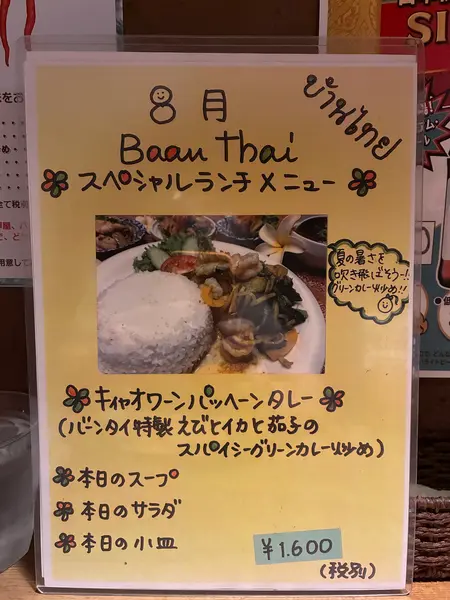 8月
บ้านไทย
Baan Thai
スペシャルランチメニュー
夏の暑さを
吹き飛ばそうー!!
グリーンカレー炒め!!
キャオワーンパッヘーンタレー
(バーンタイ特製えびとイカと茄子の
スパイシーグリーンカレー炒め)
本日のスープ
本日のサラダ
本日の小皿
¥1.600
(税別)